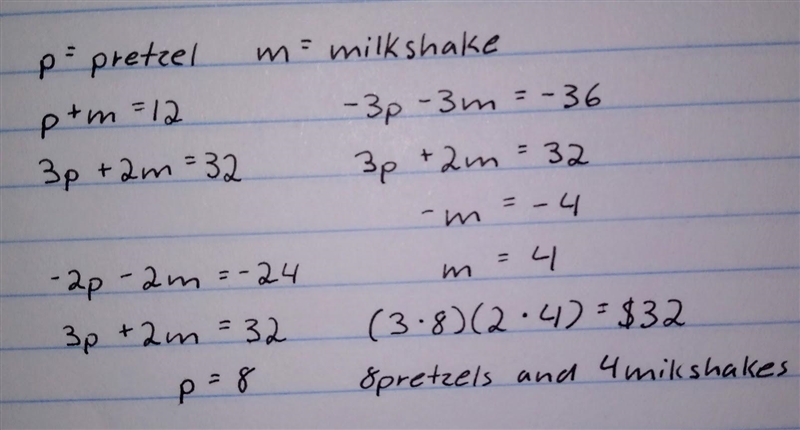 p = pretzel m = milkshake
p + m = 12
3p + 2m = 32
-3p - 3m = -36
3p + 2m = 32
-m = -4
m = 4
-2p - 2m = -24
3p + 2m = 32
p = 8
(3 · 8)(2 · 4) = $32
8pretzels and 4milkshakes